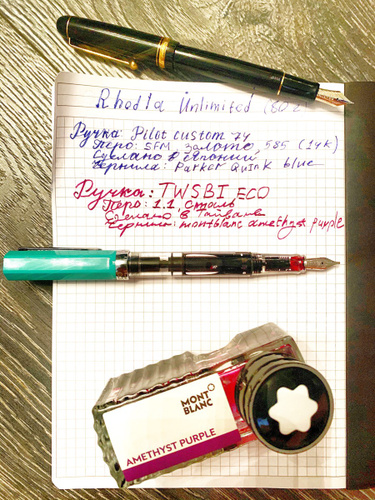 Rhodia Unlimited (80 г
Ручка: Pilot custom 74
Перо: SFM, Золото, 585 (14к)
Сделано в Японии
Чернила: Parker Quink blue
Ручка: TWSBI ECO
Перо: 1.1, сталь
Сделано в Тайване
Чернила: montblanc amethyst purple
MONT
BLANC
AMETHYST PURPLE